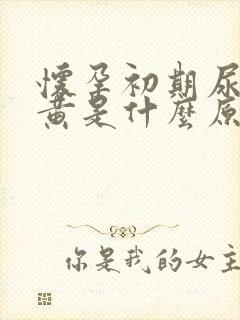 懷孕初期尿
黃是什麼原
你是我的女主